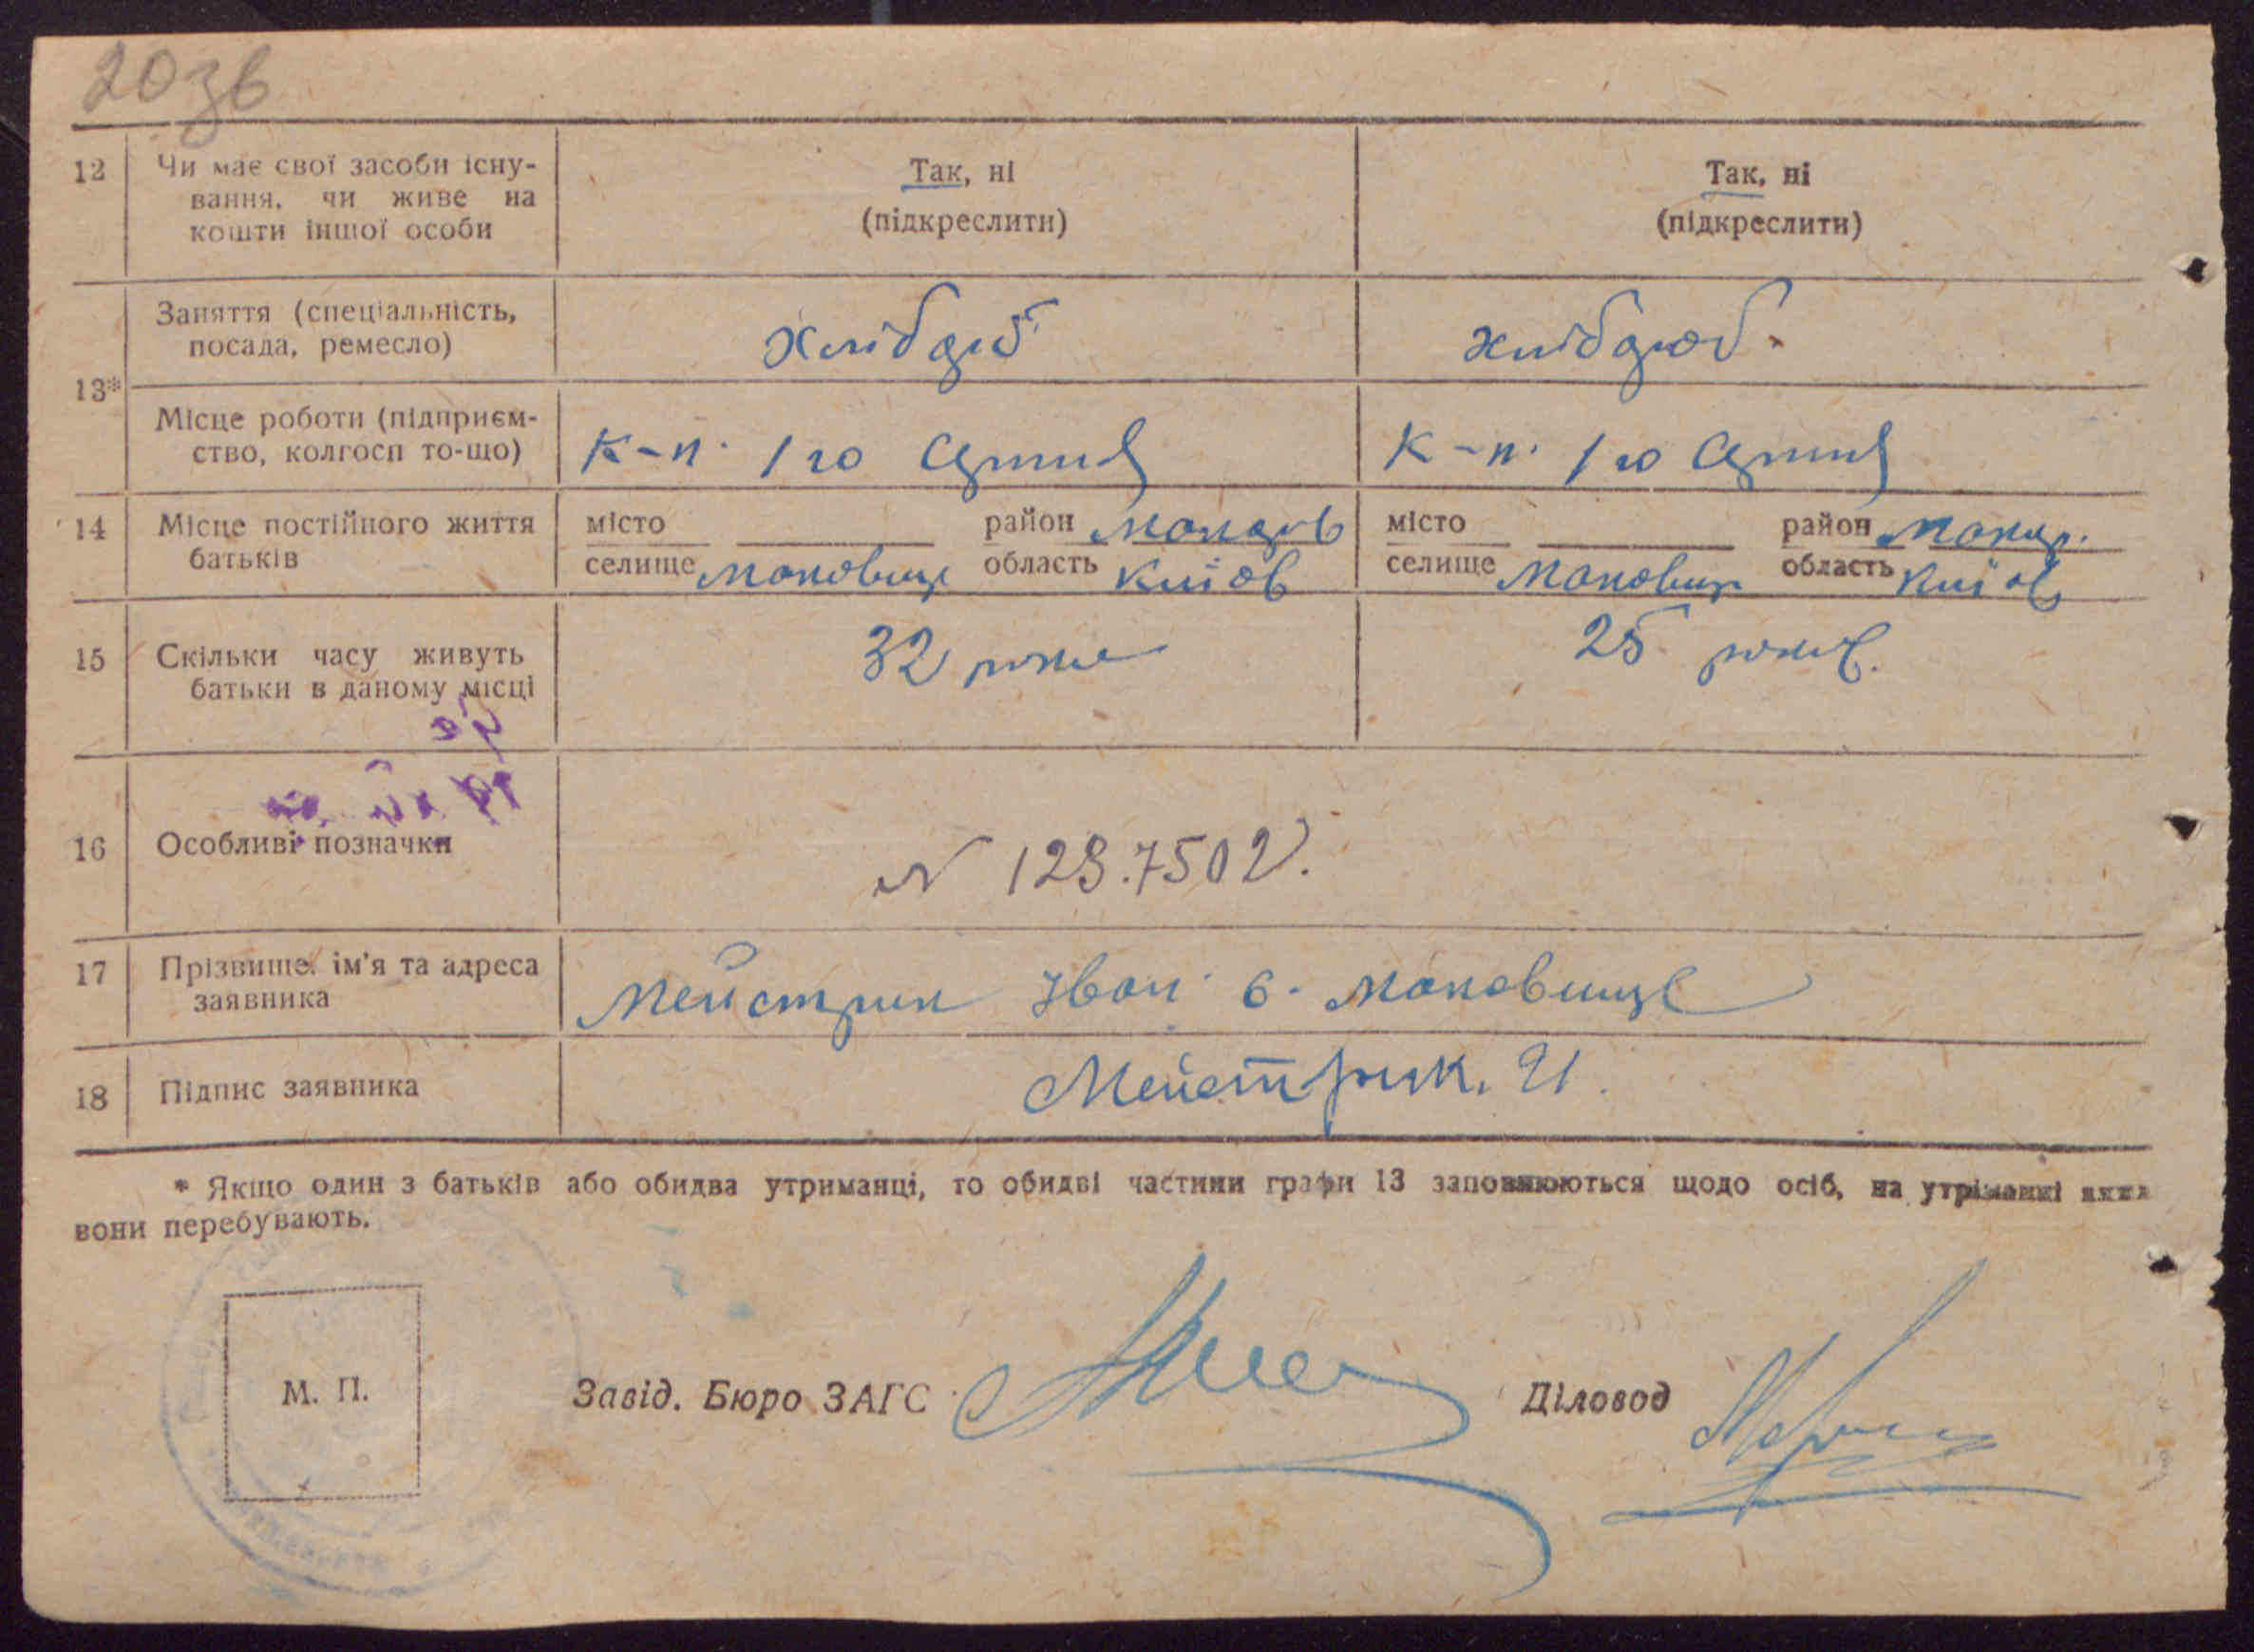 20зв
12 Чи має свої засоби існу-
вання, чи живе на
кошти іншої особи
Так, ні
(підкреслити)
Так, ні
(підкреслити)
13*
Заняття (спеціальність,
посада, ремесло)
Хлібороб
хлібороб.
Місце роботи (підприєм-
ство, колгосп то-що)
к-п. 1го
к-п. 1го
14 Місце постійного життя
батьків
місто район Макарів
селище Маковище область Київ
місто район Макар.
селище Маковище область Київ
15 Скільки часу живуть
батьки в даному місці
32 роки
25 років.
16 Особливі позначки
N 128.7502.
17 Прізвище, ім'я та адреса
заявника
Мейстрик Іван с. Маковище
18 Підпис заявника
Мейстрик. И.
* Якщо один з батьків або обидва утриманці, то обидві частини графи 13 заповнюються щодо осіб, на утріманні яких
вони перебувають.
М. П.
Завід. Бюро ЗАГС
Діловод